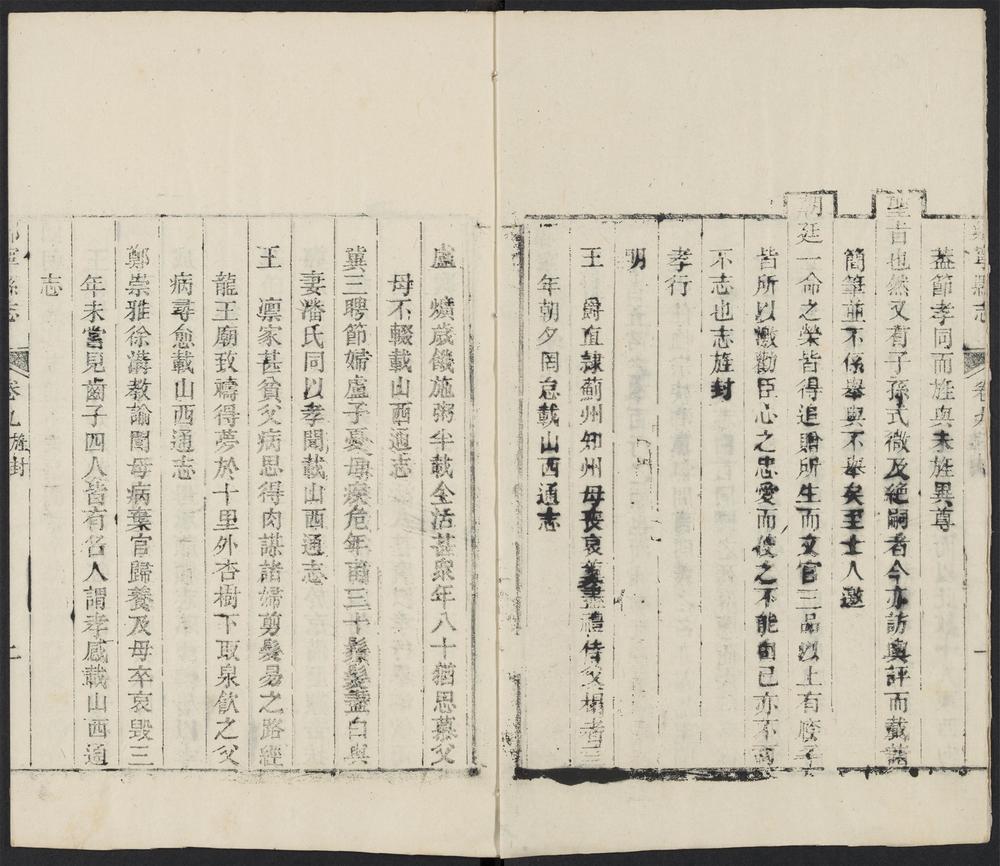 寧縣志 卷九
蓋節孝同而旌與未旌異尊
聖旨也然又有子孫式微及絕嗣者今亦訪輿評而載諸
簡筆並不係舉與不舉矣至士人邀
朝廷一命之榮皆得追贈所生而文官三品以上有
皆所以激勸臣心之忠愛而使之不能自已亦不可
不志也志旌封
孝行
明
王 爵直隸薊州知州母喪哀盡禮侍父榻者三
年朝夕罔怠載山西通志
盧 爌歲饑施粥半載全活甚衆年八十猶思慕父
母不輟載山西通志
冀三聘節婦盧子憂母疾危年甫三十鬚髮盡白與
妻潘氏同以孝聞載山西通志
王 凛家甚貧父病思得肉謀諸婦剪髮易之路經
龍王廟致禱得夢於十里外杏樹下取泉飲之父
病尋愈載山西通志
鄭崇雅徐溝教諭聞母病棄官歸養及母卒哀毀三
年未嘗見齒子四人皆有名人謂孝感載山西通
志
寧縣志 卷九 旌封 二